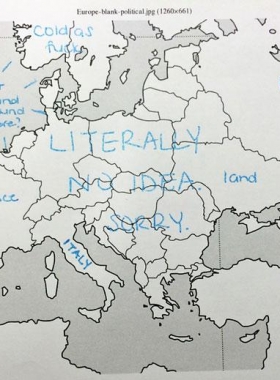 Europe-blank-political.jpg (1260×661)
Cold as
fuck
ound
ore?
LITERALLY
NO IDEA. land
SORRY.
ITALY